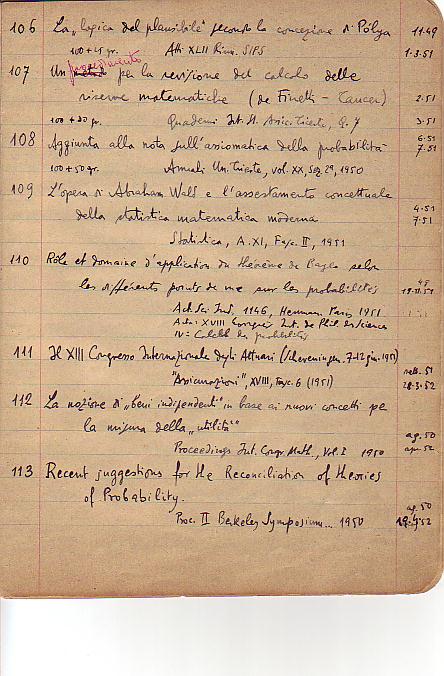 106 La „logica del plausibile" secondo la concezione di Pólya 11.49
100 + 25 gr. Atti XLII Riun. SIPS 1.3.51
suggerimento
107 Un per la revisione del calcolo delle
riserve matematiche (de Finetti - Tancer) 2.51
100 + 30 gr. Quaderni Ist. St. Assic. Trieste, Q. 7 3.51
108 Aggiunta alla nota sull'assiomatica della probabilità 6.51 7.51
100 + 50 gr. Annali Un. Trieste, vol. XX, Sez. 2ª, 1950
109 L'opera di Abraham Wald e l'assestamento concettuale 4.51
della statistica matematica moderna 7.51
Statistica, A. XI, Fasc. II, 1951
110 Rôle et domaine d'application du théorème de Bayes selon
les différents points de vue sur les probabilités 49
Act. Sci. Ind. 1146, Hermann, Paris 1951
Actes XVIII Congrès Int. de Phil. des Sciences
IV: Calcul des probabilités
111 Il XIII Congresso Internazionale degli Attuari (Scheveningen, 7-12 giu. 1951) sett. 51
"Assicurazioni", XVIII, Fasc. 6 (1951) 28.3.52
112 La nozione di „beni indipendenti" in base ai nuovi concetti per
la misura della „utilità" ag. 50
Proceedings Int. Congr. Math., Vol. I 1950 apr. 52
113 Recent suggestions for the Reconciliation of theories
of Probability. ag. 50
Proc. II Berkeley Symposium... 1950